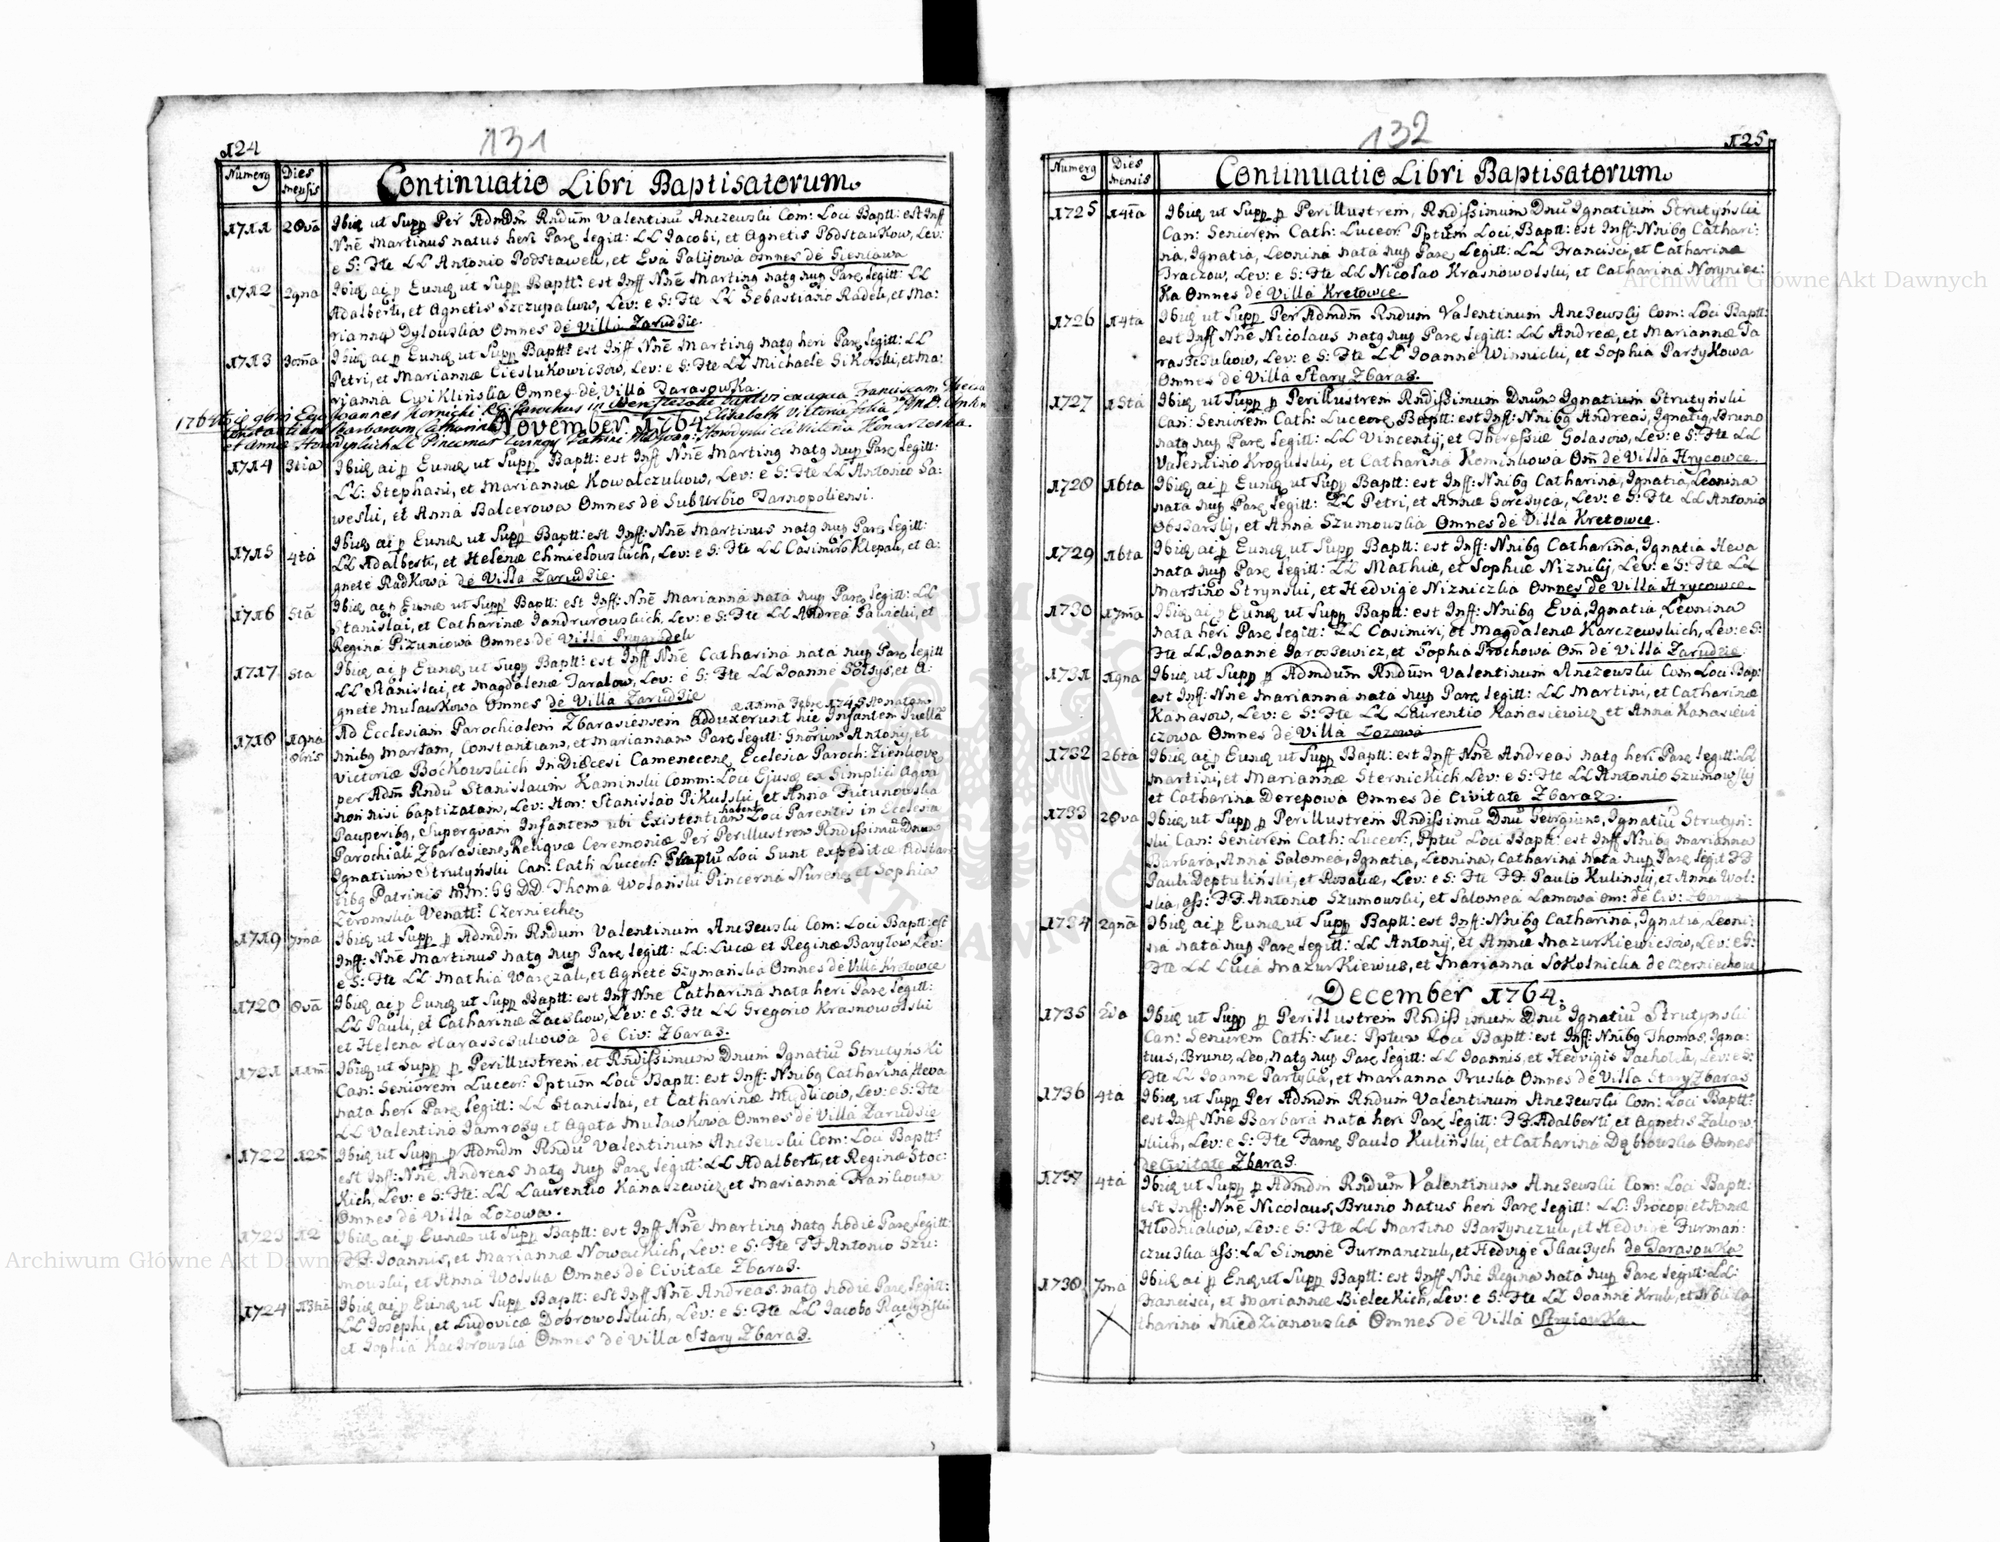 124
131
Numerq
Dies mensis
Continuatio Libri Baptisatorum.
1711
28va
Ibidq ut Supp Per Admdm Rndum Valentinu Anczewski Com: Loci Baptt: est Inff
Nne Martinus natus heri Parq legitt: LL Iacobi, et Agnetis Podstawkow, Lev:
e S: Fte LL Antonio Podstawek, et Eva Palijowa omnes de
1712
29na
Ibidq ai p Eundq ut Supp Baptt: est Inff Nne Martinq natq nup Parq Legitt: LL
Adalberti, et Agnetis Szczupakuw, Lev: e S: Fte LL Sebastiano Radek, et Ma:
rianna Dylowska Omnes de Villa Zarudzie.
1713
30ma
Ibidq ai p Eundq ut Supp Baptt: est Inff Nne Martinq natq heri Parq Legitt: LL
Petri, et Mariannæ Cieslukowiczow, Lev: e S: Fte LL Michaele Sikorski, et Ma:
rianna Cwiklinska Omnes de Villa Tarasowka.
1764
Ego Joannes Kornicki Parochus in baptizavi ex aqua Franciscam
Barbaram Catharinam Elisabeth Victoria filia
et Annæ LL
November 1764
1714
3tia
Ibidq ai p Eundq ut Supp Baptt: est Inff Nne Martinq natq nup Parq Legitt:
LL: Stephani, et Mariannæ Kowalczukow, Lev: e S: Fte LL Antonio Sa:
weski, et Anna Balcerowa Omnes de SubUrbio Tarnopoliensi.
1715
4ta
Ibidq ai p Eundq ut Supp Baptt: est Inff: Nne Martinus natq nup Parq legitt:
LL Adalberti, et Helenæ Chmielowskich, Lev: e S: Fte LL Casimiro Klepak, et A:
gnete Radkowa de Villa Zarudzie.
1716
5ta
Ibidq ai p Eundq ut Supp Baptt: est Inff: Nne Marianna nata nup Parq legitt: LL
Stanislai, et Catharinæ Iandrurowskich, Lev: e S: Fte LL Andrea Pawicki, et
Regina Pizuniowa Omnes de Villa
1717
5ta
Ibidq ai p Eundq ut Supp Baptt: est Inff Nne Catharina nata nup Parq legitt
LL Stanislai, et Magdalenæ Taralow, Lev: e S: Fte LL Ioanne Soltys, et A:
gnete Mulawkowa Omnes de Villa Zarudzie
1718
Ad Ecclesiam Parochialem Zbarasiensem Adduxerunt hic Infantem Puella
nnibq Martam, Constantiam, et Mariannam Parq legitt: Gnorum Antonij, et
Victoriæ Boćkowskich In Diæcesi Camenecene Ecclesia Paroch:
per Adm Rndu Stanislaum Kaminski Comm: Loci Ejusq ex Simplici Aqva
non nisi baptizatam, Lev: Hon: Stanislao Pikulski, et Anna
Pauperibq, Superqvam Infantem ubi Existentiam habent Loci Parentis in Ecclesia
Parochiali Zbarasiene, Reliqvæ Ceremoniæ Per Perillustrem Rndissimu Dnum
Ignatium Strutyński Can: Cath Luceor: Loci Sunt expeditæ Adstan:
tibq Patrinis GG DD. Thoma Wolański Pincerna Nurene, et Sophia
Zeromska Venatt: Czernieche
1719
7ma
Ibidq ut Supp p Admdm Rndum Valentinum Anczewski Com: Loci Baptt: est
Inff: Nne Martinus natq nup Parq legitt: LL: Lucæ et Reginæ Barylow, Lev:
e S: Fte LL: Mathia Warzzak, et Agnete Szymańska Omnes de Villa Kretowce
1720
8va
Ibidq ai p Eundq ut Supp Baptt: est Inff Nne Catharina nata heri Parq legitt:
LL Pauli, et Catharinæ Zaeskow, Lev: e S: Fte LL Gregorio Krasnowolski
et Helena Harasczukowa de Civ: Zbaraz.
1721
Ibidq ut Supp p Perillustrem et Rndissimum Dnum Ignatiu Strutyński
Can: Seniorem Luceor: Pptum Loci Baptt: est Inff: Nnibq Catharina Heva
nata heri Parq legitt: LL Stanislai, et Catharinæ Mydlicow, Lev: e S: Fte
LL Valentino Iamrozy et Agata Mulawkowa Omnes de Villa Zarudzie
1722
Ibidq ut Supp p Admdm Rndu Valentinum Anczewski Com: Loci Baptt:
est Inf: Nne Andreas natq nup Parq legitt: LL Adalberti, et Reginæ Stoc:
kich, Lev: e S: Fte: LL Laurentio Kanaszewicz, et Marianna Wasilkowa
Omnes de Villa Lozowa.
1723
12
Ibidq ai p Eundq ut Supp Baptt: est Inff Nne Martinq natq hodie Parq legitt:
FF Ioannis, et Mariannæ Nowackich, Lev: e S: Fte FF Antonio Szu:
mowski, et Anna Wolska Omnes de Civitate Zbaraz.
1724
13tia
Ibidq ai p Eundq ut Supp Baptt: est Inff Nne Andreas natq hodie Parq legitt:
LL Iosephi, et Ludovicæ Dobrowolskich, Lev: e S: Fte LL Iacobo Raczynski
et Sophia Kaczorowska Omnes de Villa Stary Zbaraz.
125
132
Numerq
Dies mensis
Continuatio Libri Baptisatorum.
1725
14ta
Ibidq ut Supp p Perillustrem, Rndissimum Dnu Ignatium Strutyński
Can: Seniorem Cath: Luceor Pptum Loci Baptt: est Inff: Nnibq Cathari:
na, Ignatia, Leonina nata nup Parq Legitt: LL Francisci, et Catharinæ
Traczow, Lev: e S: Fte LL Nicolao Krasnowolski, et Catharina Noryniec:
ka Omnes de Villa Kretowce.
1726
14ta
Ibidq ut Supp Per Admdm Rndum Valentinum Anczewskj Com: Loci Baptt:
est Inff Nne Nicolaus natq nup Parq legitt: LL Andreæ, et Mariannæ Ta
rasczukow, Lev: e S: Fte LL Ioanne Winnicki, et Sophia Partykowa
Omnes de Villa Stary Zbaraz.
1727
15ta
Ibidq ut Supp p Perillustrem Rndissimum Dnum Ignatium Strutyński
Can: Seniorem Cath: Luceore Baptt: est Inff: Nnibq Andreas, Ignatiq, Bruno
natq nup Parq legitt: LL Vincentij, et Theressiæ Golasow, Lev: e S: Fte LL
Valentino Krogulski, et Catharina Kominkowa Om de Villa Hrycowce.
1728
16ta
Ibidq ai p Eundq ut Supp Baptt: est Inff: Nnibq Catharina, Ignatia, Leonina
nata nup Parq legitt: LL Petri, et Annæ Gorczyca, Lev: e S: Fte LL Antonio
Obszarskj, et Anna Szumowska Omnes de Villa Kretowce.
1729
16ta
Ibidq ai p Eundq ut Supp Baptt: est Inff: Nnibq Catharina, Ignatia Heva
nata nup Parq legitt: LL Mathiæ, et Sophiæ Niznikj, Lev: e S: Fte LL
Martino Strynski, et Hedvige Nizniczka Omnes de Villa Hrycowce.
1730
17ma
Ibidq ai p Eundq ut Supp Baptt: est Inff: Nnibq Eva, Ignatia, Leonina
nata heri Parq legitt: LL Casimiri, et Magdalenæ Karczewskich, Lev: e S:
Fte LL Ioanne Iaroszewicz, et Sophia Prochowa Om de Villa Zarudzie.
1731
19na
Ibidq ut Supp p Admdum Rndum Valentinum Anczewski Com Loci Bap:
est Inff: Nne Marianna nata nup Parq legitt: LL Martini, et Catharinæ
Kanasow, Lev: e S: Fte LL Laurentio Kanasiewicz et Anna Kanasiewi
czowa Omnes de Villa Lozowa
1732
26ta
Ibidq ai p Eundq ut Supp Baptt: est Inff Nne Andreas natq heri Parq legitt: LL
Martini, et Mariannæ Sternickich, Lev: e S: Fte LL Antonio Szumowskj
et Catharina Derepowa Omnes de Civitate Zbaraz.
1733
28va
Ibidq ut Supp p Perillustrem Rndissimu Dnu Georgium, Ignatiu Strutyń:
ski Can: Seniorem Cath: Luceor:, Pptu Loci Baptt: est Inff Nnibq Marianna
Barbara, Anna Salomea, Ignatia, Leonina, Catharina nata nup Parq legit FF
Pauli Deptulinski, et Rosaliæ, Lev: e S: Fte FF. Paulo Kulinskj, et Anna Wol:
ska, ass: FF Antonio Szumowski, et Salomea Lamowa om: de Civ: Zbaraz
1734
29na
Ibidq ai p Eundq ut Supp Baptt: est Inff: Nnibq Catharina, Ignatia, Leoni:
na nata nup Parq legitt: LL Antonij, et Annæ Mazurkiewiczow, Lev: e S:
Fte LL Luca Mazurkiewus, et Marianna Sokolnicka de Czerniechow
December 1764.
1735
2da
Ibidq ut Supp p Perillustrem Rndissimum Dnu Ignatiu Strutynski
Can: Seniorem Cath: Luc: Pptum Loci Baptt: est Inff: Nnibq Thomas, Igna:
tius, Bruno, Leo, natq nup Parq legitt: LL Ioannis, et Hedvigis Pacholka, Lev: e S:
Fte LL Ioanne Partyka, et Marianna Pruska Omnes de Villa Stary Zbaraz
1736
4ta
Ibidq ut Supp Per Admdm Rndum Valentinum Anczewski Com: Loci Baptt:
est Inff Nne Barbara nata heri Parq legitt: FF. Adalberti, et Agnetis Zalew:
skich, Lev: e S: Fte Famq Paulo Kuliński, et Catharina Dąbrowska Omnes
de Civitate Zbaraz.
1737
4ta
Ibidq ut Supp p Admdm Rndum Valentinum Anczewski Com: Loci Baptt:
est Inff: Nne Nicolaus, Bruno natus heri Parq legitt: LL: Procopi et Annæ
Hlodniakow, Lev: e S: Fte LL Martino Bartynczuk, et Hedvige Furman:
czuczka ass: LL Simone Furmanczuk, et Hedvige Tkaczych de Tarasowka
1738
7ma
Ibidq ai p Eundq ut Supp Baptt: est Inff Nne Regina nata nup Parq legitt: LL:
Francisci, et Mariannæ Bieleckich, Lev: e S: Fte LL Ioanne Kruk, et
tharina Miedzianowska Omnes de Villa Stryiowka.
Archiwum Główne Akt Dawnych
Archiwum Główne Akt Dawnych